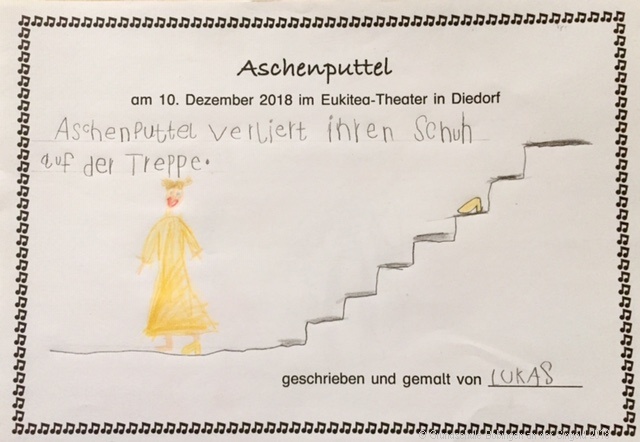 Aschenputtel
am 10. Dezember 2018 im Eukitea-Theater in Diedorf
Aschenputtel verliert ihren Schuh
auf der Treppe.
geschrieben und gemalt von LUKAS